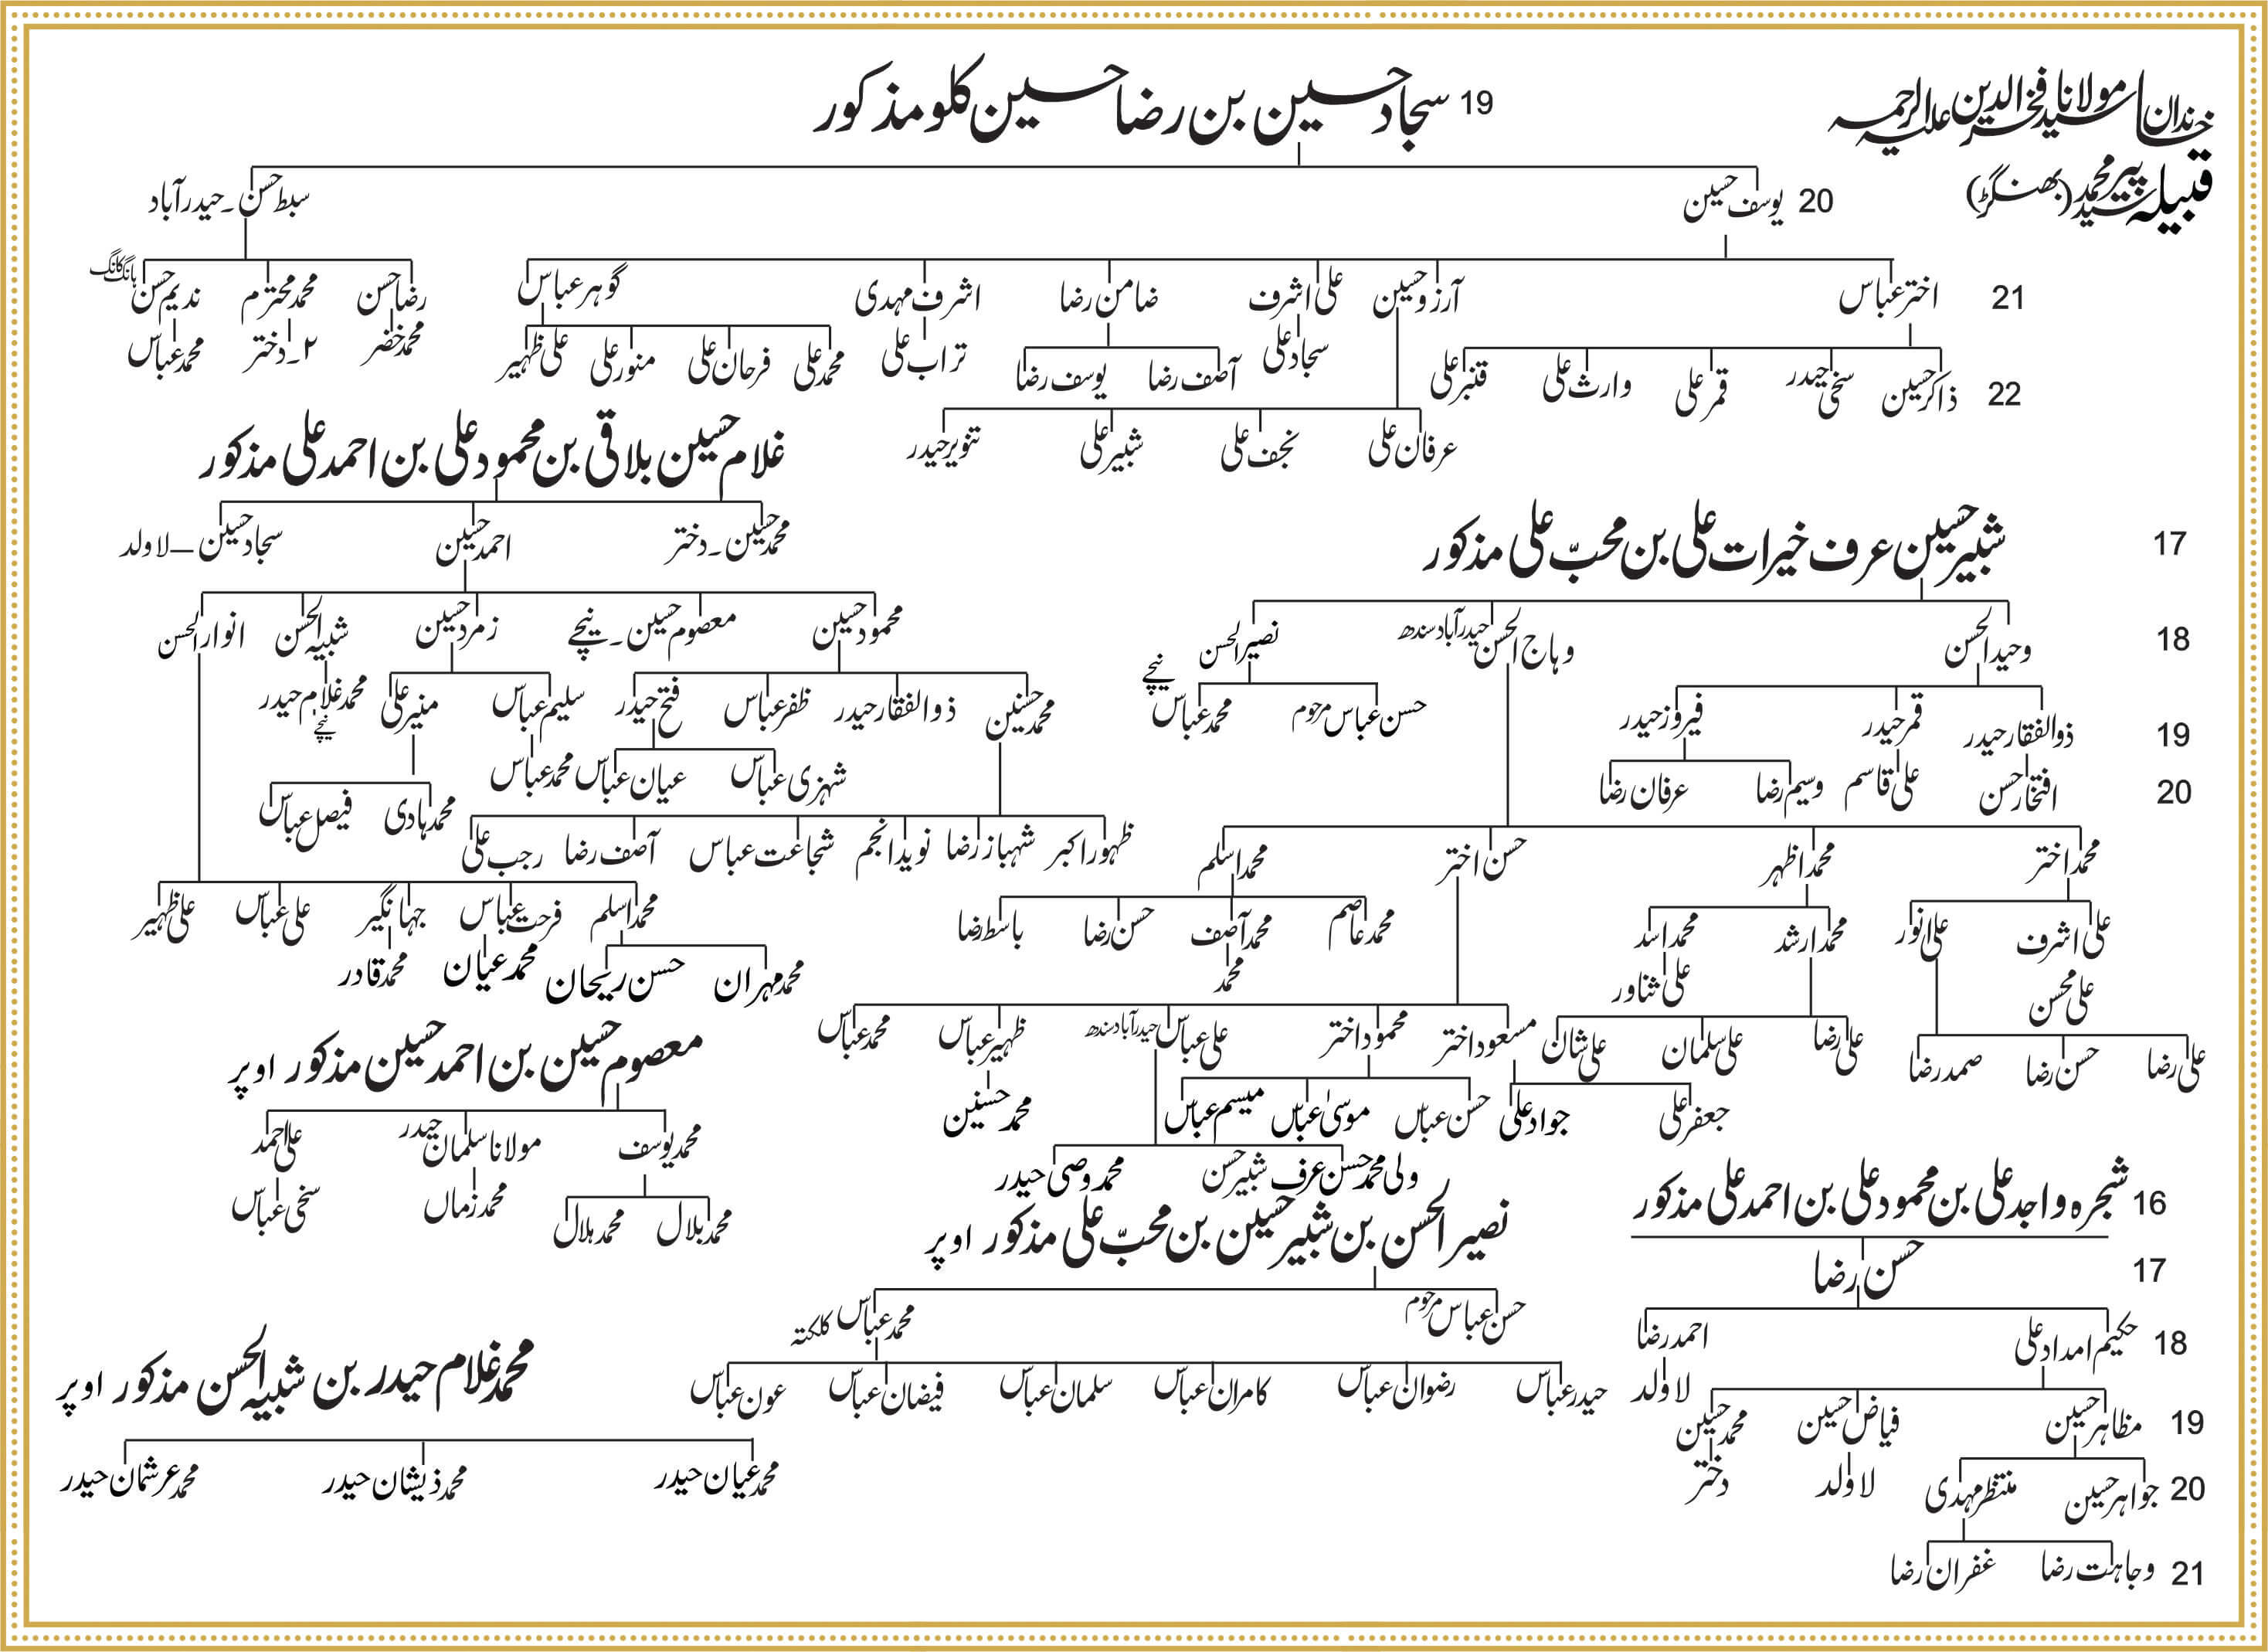 خاندان مولانا سید فخرالدین علیہ الرحمہ
قبیلہ سید پیر محمد (بھنگڑ)
19 سجاد حسین بن رضا حسین کلو مذکور
20 یوسف حسین سبط حسن۔حیدرآباد
21 اختر عباس آرزو حسین علی اشرف ضامن رضا اشرف مہدی گوہر عباس رضا حسن محمد محترم ندیم حسن ہانگ کانگ
سجاد علی آصف رضا یوسف رضا تراب علی محمد علی فرحان علی منور علی علی ظہیر محمد خضر ۲۔دختر محمد عباس
22 ذاکر حسین سخی حیدر قمر علی وارث علی قنبر علی
عرفان علی نجف علی شبیر علی تنویر حیدر
غلام حسین بلاقی بن محمود علی بن احمد علی مذکور
محمد حسین۔دختر احمد حسین سجاد حسین–لاولد
محمود حسین معصوم حسین۔نیچے زمرد حسین شبیہ الحسن انوار الحسن
محمد حسنین ذوالفقار حیدر ظفر عباس فتح حیدر سلیم عباس منیر علی محمد غلام حیدر نیچے
شہزی عباس عیان عباس محمد عباس
محمد ہادی فیصل عباس
ظہور اکبر شہباز رضا نوید انجم شجاعت عباس آصف رضا رجب علی
محمد اسلم فرحت عباس جہانگیر علی عباس علی ظہیر
محمد مہران حسن ریحان محمد عیان محمد قادر
17 شبیر حسین عرف خیرات علی بن محبّ علی مذکور
18 وحید الحسن وہاج الحسن حیدرآباد سندھ نصیر الحسن
19 ذوالفقار حیدر قمر حیدر فیروز حیدر حسن عباس مرحوم محمد عباس نیچے
20 افتخار حسن علی قاسم وسیم رضا عرفان رضا
محمد اختر محمد اظہر حسن اختر محمد اسلم
علی اشرف علی انور محمد ارشد محمد اسد محمد عاصم محمد آصف حسن رضا باسط رضا
علی محسن علی شناور محمد
علی رضا حسن رضا صمد رضا علی رضا علی سلمان علی شان مسعود اختر محمود اختر علی عباس حیدرآباد سندھ ظہیر عباس محمد عباس
جعفر علی جواد علی حسن عباس موسیٰ عباس میسم عباس محمد حسنین
ولی محمد حسن عرف شبیر حسن محمد وصی حیدر
معصوم حسین بن احمد حسین مذکور اوپر
محمد یوسف مولانا سلمان حیدر علی احمد
محمد بلال محمد ہلال محمد زماں سخی عباس
نصیر الحسن بن شبیر حسین بن محبّ علی مذکور اوپر
حسن عباس مرحوم محمد عباس کلکتہ
حیدر عباس رضوان عباس کامران عباس سلمان عباس فیضان عباس عون عباس
محمد غلام حیدر بن شبیہ الحسن مذکور اوپر
محمد عیان حیدر محمد ذیشان حیدر محمد عرشمان حیدر
16 شجرہ واجد علی بن محمود علی بن احمد علی مذکور
17 حسن رضا
18 حکیم امداد علی احمد رضا
لاولد
19 مظاہر حسین فیاض حسین محمد حسین
20 جواہر حسین منتظر مہدی لاولد دختر
21 وجاہت رضا غفران رضا